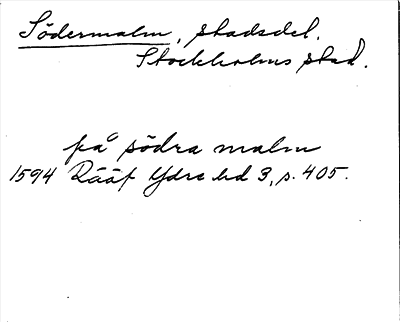 Södermalm, stadsdel.
Stockholms stad.
på södra malm
1594 Rääf Ydre hd 3, s. 405.